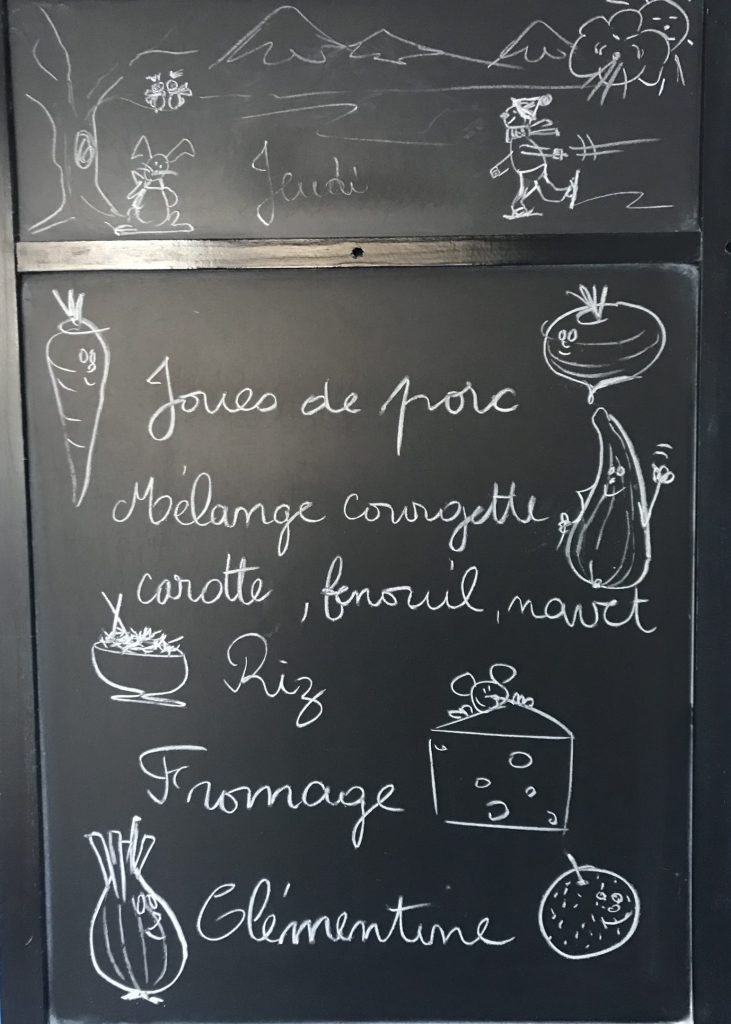 Jeudi
Joues de porc
Mélange courgette
carotte, fenouil, navet
Riz
Fromage
Clémentine